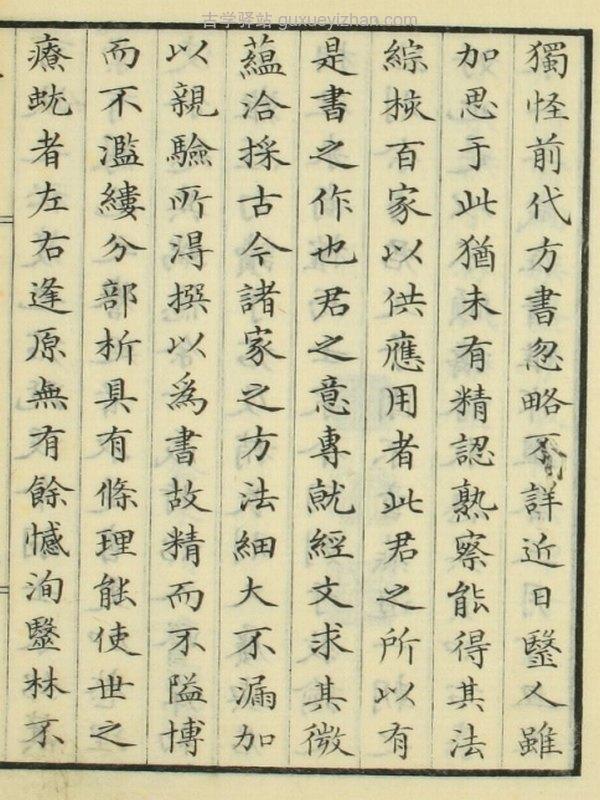 古学驿站 guxueyizhan.com
獨怪前代方書忽略不詳近日毉人雖
加思于此猶未有精認熟察能得其法
綜核百家以供應用者此君之所以有
是書之作也君之意專就經文求其微
蘊洽採古今諸家之方法細大不漏加
以親驗所得撰以爲書故精而不隘博
而不濫縷分部析具有條理能使世之
療蚘者左右逢原無有餘憾洵毉林不